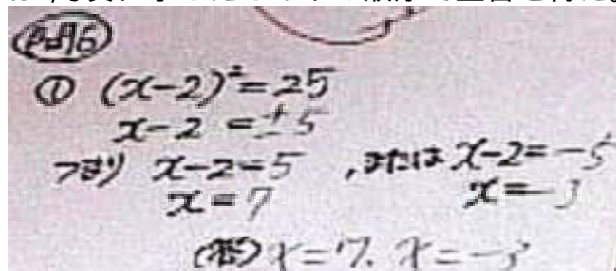 ① (x-2)²=25
x-2 =±5
つまり x-2=5 , または x-2=-5
x=7 x=-3
(答) x=7, x=-3